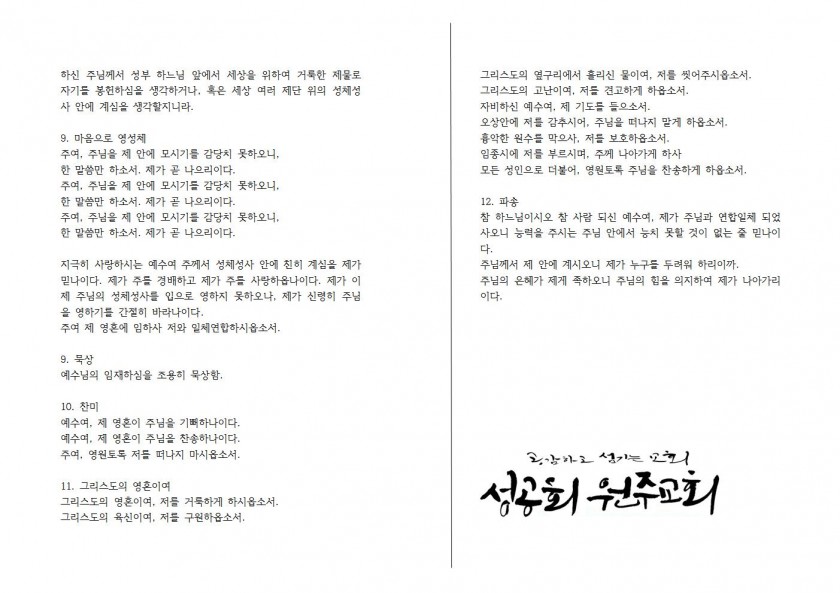 하신 주님께서 성부 하느님 앞에서 세상을 위하여 거룩한 제물로
자기를 봉헌하심을 생각하거나, 혹은 세상 여러 제단 위의 성체성
사 안에 계심을 생각할지니라.
9. 마음으로 영성체
주여, 주님을 제 안에 모시기를 감당치 못하오니,
한 말씀만 하소서. 제가 곧 나으리이다.
주여, 주님을 제 안에 모시기를 감당치 못하오니,
한 말씀만 하소서. 제가 곧 나으리이다.
주여, 주님을 제 안에 모시기를 감당치 못하오니,
한 말씀만 하소서. 제가 곧 나으리이다.
지극히 사랑하시는 예수여 주께서 성체성사 안에 친히 계심을 제가
믿나이다. 제가 주를 경배하고 제가 주를 사랑하옵나이다. 제가 이
제 주님의 성체성사를 입으로 영하지 못하오나, 제가 신령히 주님
을 영하기를 간절히 바라나이다.
주여 제 영혼에 임하사 저와 일체연합하시옵소서.
9. 묵상
예수님의 임재하심을 조용히 묵상함.
10. 찬미
예수여, 제 영혼이 주님을 기뻐하나이다.
예수여, 제 영혼이 주님을 찬송하나이다.
주여, 영원토록 저를 떠나지 마시옵소서.
11. 그리스도의 영혼이여
그리스도의 영혼이여, 저를 거룩하게 하시옵소서.
그리스도의 육신이여, 저를 구원하옵소서.
그리스도의 옆구리에서 흘리신 물이여, 저를 씻어주시옵소서.
그리스도의 고난이여, 저를 견고하게 하옵소서.
자비하신 예수여, 제 기도를 들으소서.
오상안에 저를 감추시어, 주님을 떠나지 말게 하옵소서.
흉악한 원수를 막으사, 저를 보호하옵소서.
임종시에 저를 부르시며, 주께 나아가게 하사
모든 성인으로 더불어, 영원토록 주님을 찬송하게 하옵소서.
12. 파송
참 하느님이시오 참 사람 되신 예수여, 제가 주님과 연합일체 되었
사오니 능력을 주시는 주님 안에서 능치 못할 것이 없는 줄 믿나이
다.
주님께서 제 안에 계시오니 제가 누구를 두려워 하리이까.
주님의 은혜가 제게 족하오니 주님의 힘을 의지하여 제가 나아가리
이다.
공감하고 섬기는 교회
성공회 원주교회